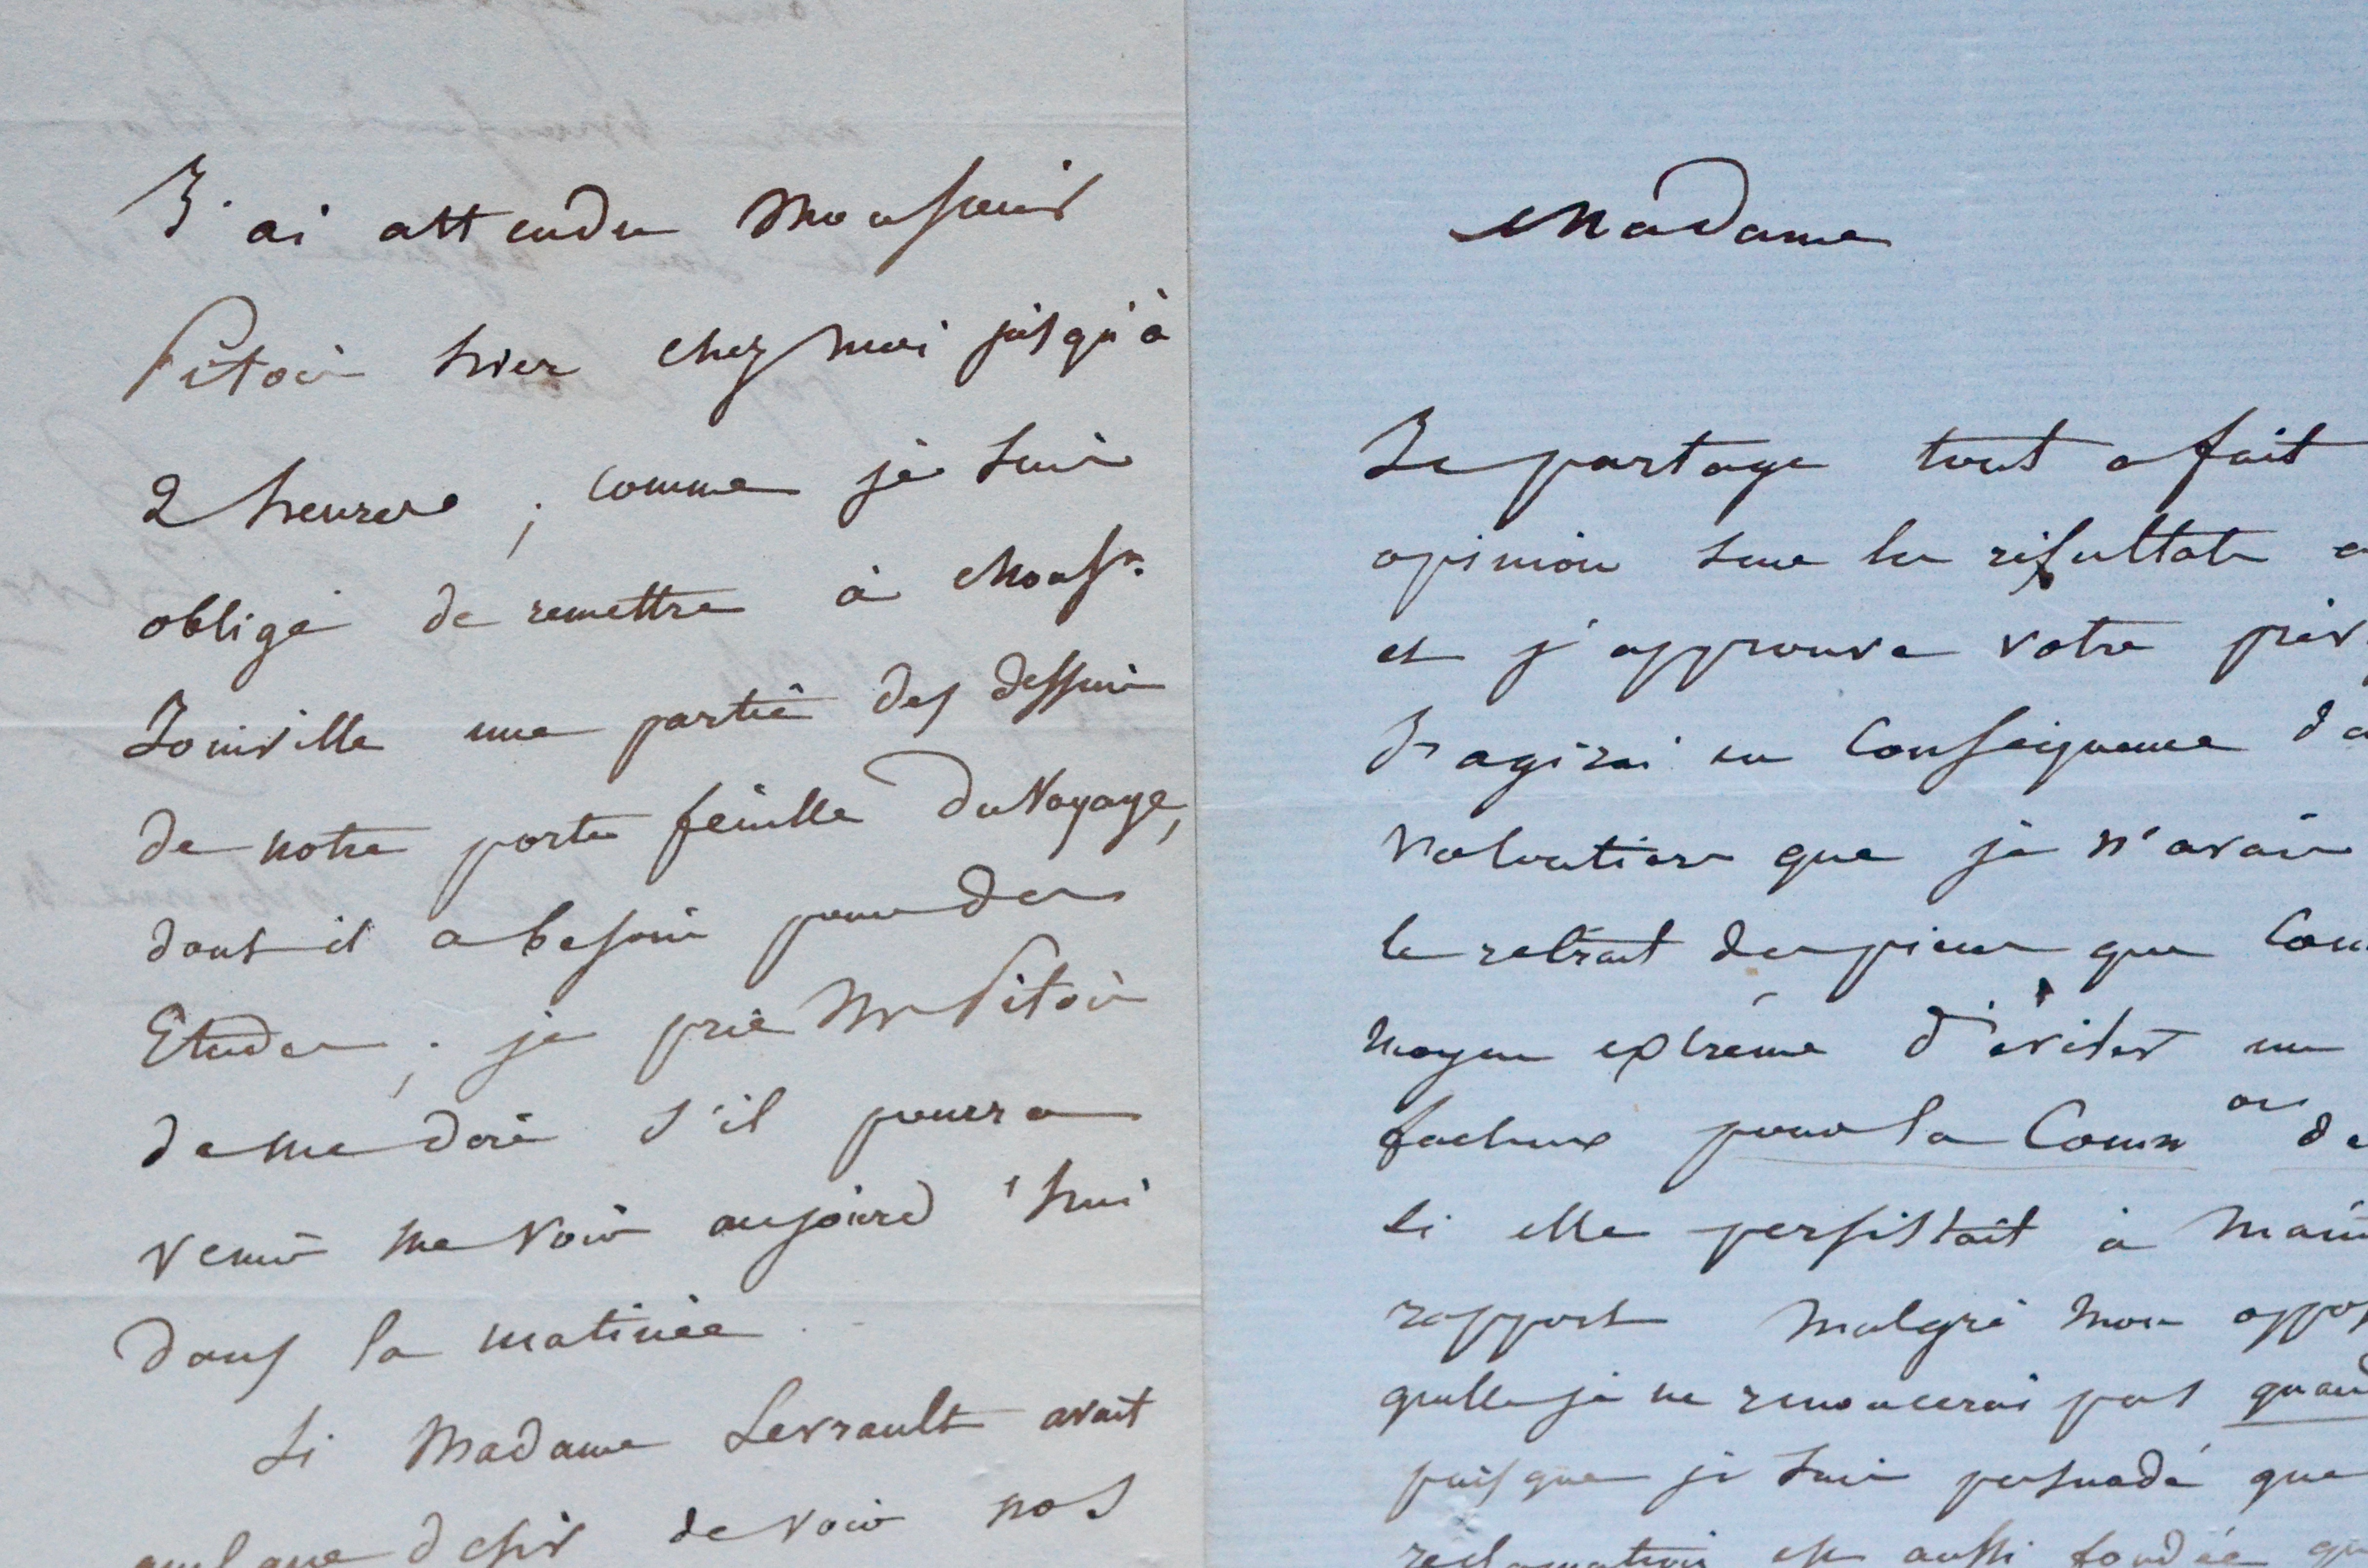 J'ai attendu Monsieur
Pitois hier chez moi jusqu'à
2 heures ; comme je suis
obligé de remettre à Monsr.
Joinville une partie des dessins
de notre porte feuille du Voyage,
dont il a besoin pour des
Etudes ; je prie Mr Pitois
de me dire s'il pourra
venir me voir aujourd'hui
dans la matinée
Si Madame Levrault avait
quelque desir de voir nos
Madame
Je partage tout a fait
opinion sur les résultats
et j'approuve votre
J'agirai en Conséquence
que je n'avais
le retrait des pieces que
moyen extrême d'éviter un
facheux pour la Comm on de
si elle persistait à
rapport malgré mon
quelle je ne renoncerai pas quand
puisque je suis persuadé que
reclamation est aussi fondée